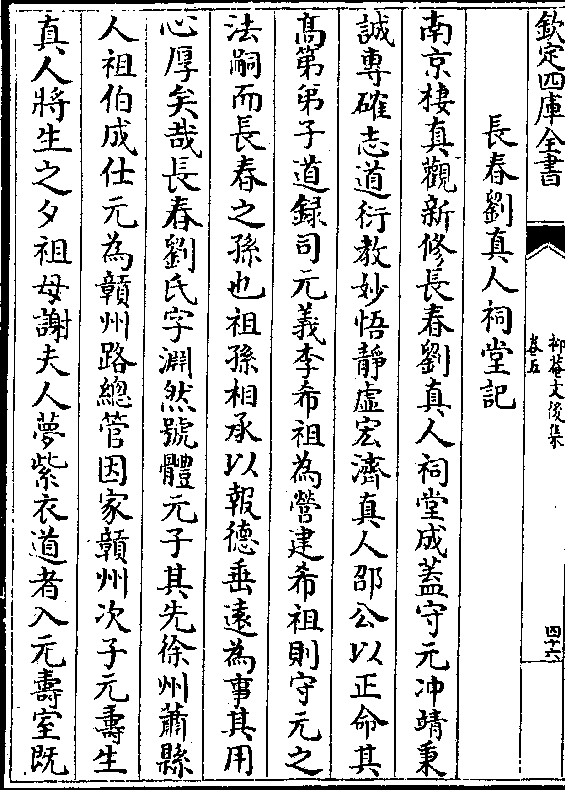 欽定四庫全書
抑菴文後集
卷五
四十六
長春劉真人祠堂記
南京棲真觀新修長春劉真人祠堂成蓋守元冲靖秉
誠專確志道衍教妙悟靜虛宏濟真人邵公以正命其
高第弟子道録司元義李希祖為營建希祖則守元之
法嗣而長春之孫也祖孫相承以報德垂遠為事其用
心厚矣哉長春劉氏字淵然號體元子其先徐州蕭縣
人祖伯成仕元為贛州路總管因家贛州次子元壽生
真人將生之夕祖母謝夫人夢紫衣道者入元壽室既